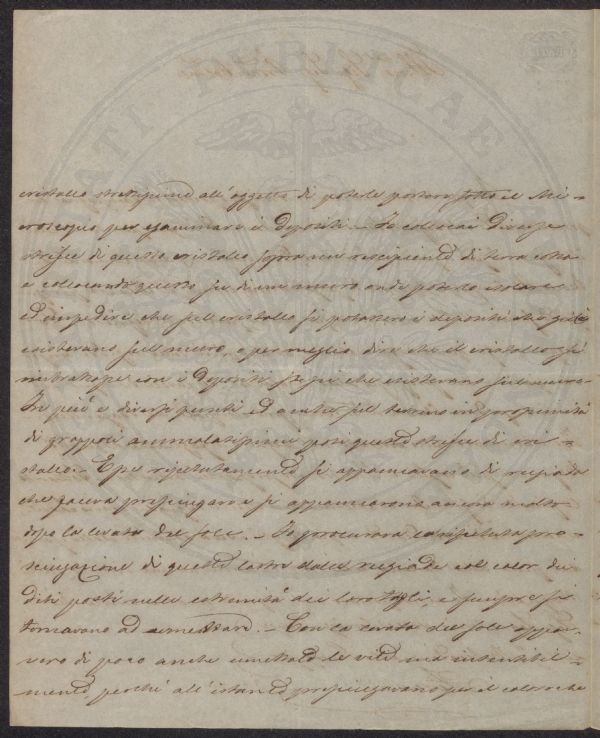 cristallo strettissime all'oggetto di poterle portare sotto il Mi-
croscopio per esaminare i depositi. - Io collocai diverse
strisce di questo cristallo sopra un recipiente di terra cotta
e collocando questo su di un muro onde poterlo isolare
ed impedire che sull cristallo si portassero i depositi che già
esistevano sull muro, o per meglio dire che il cristallo si
con i depositi che esistevano sul muro -
In più e diversi punti ed anche sull terreno in prossimità
di grappoli ammalatissimi posi queste strisce di cri-
stallo - Esse ripetutamente si appannavano di rugiada
che faceva prosciugare e si appannarono ancora molto
dopo la levata del sole. - Io procurava la ripetuta pro-
sciugazione di queste lastre dalla rugiada col calor dei
diti posti nelle estremità dei loro tagli, e sempre si
tornavano ad umettare. - Con la levata del sole appar-
vero di poco anche umettate le viti ma insensibil-
mente perché all'istante prosciugavano per il calore che